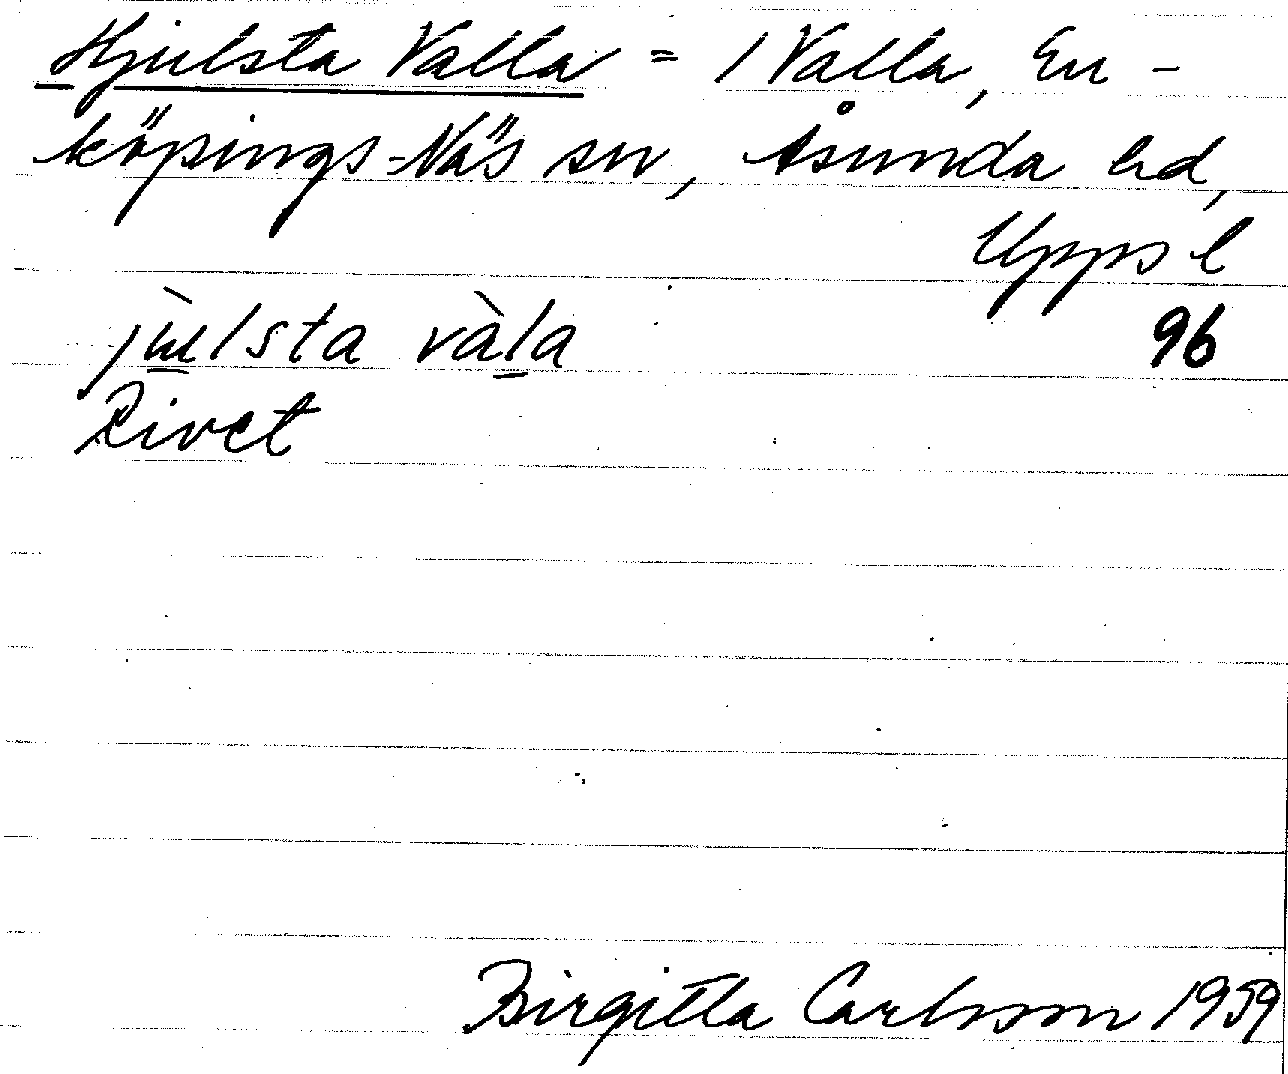 Hjulsta Valla = 1 Valla, En-
köpings-Näs sn, Åsunda hd,
Upps l
jùlsta vàla 96
Rivet
Birgitta Carlsson 1959